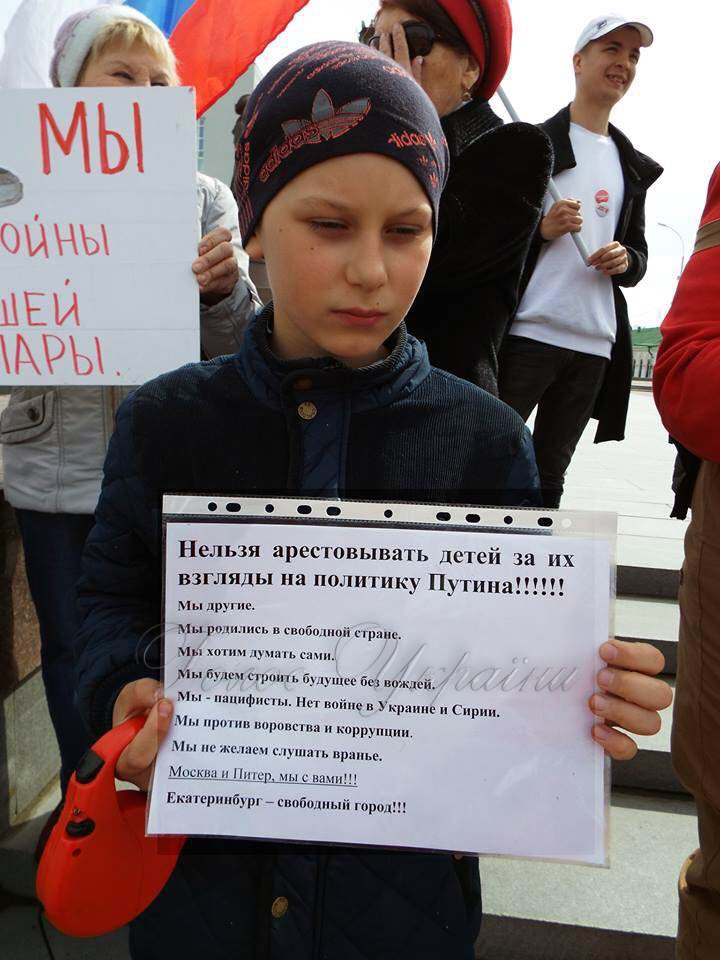 МЫ
ОЙНЫ
ШЕЙ
ЛАРЫ.
adidas
adidas
Нельзя арестовывать детей за их
взгляды на политику Путина!!!!!!
Мы другие.
Мы родились в свободной стране.
Мы хотим думать сами.
Мы будем строить будущее без вождей.
Мы - пацифисты. Нет войне в Украине и Сирии.
Мы против воровства и коррупции.
Мы не желаем слушать вранье.
Москва и Питер, мы с вами!!!
Екатеринбург – свободный город!!!
Голос України